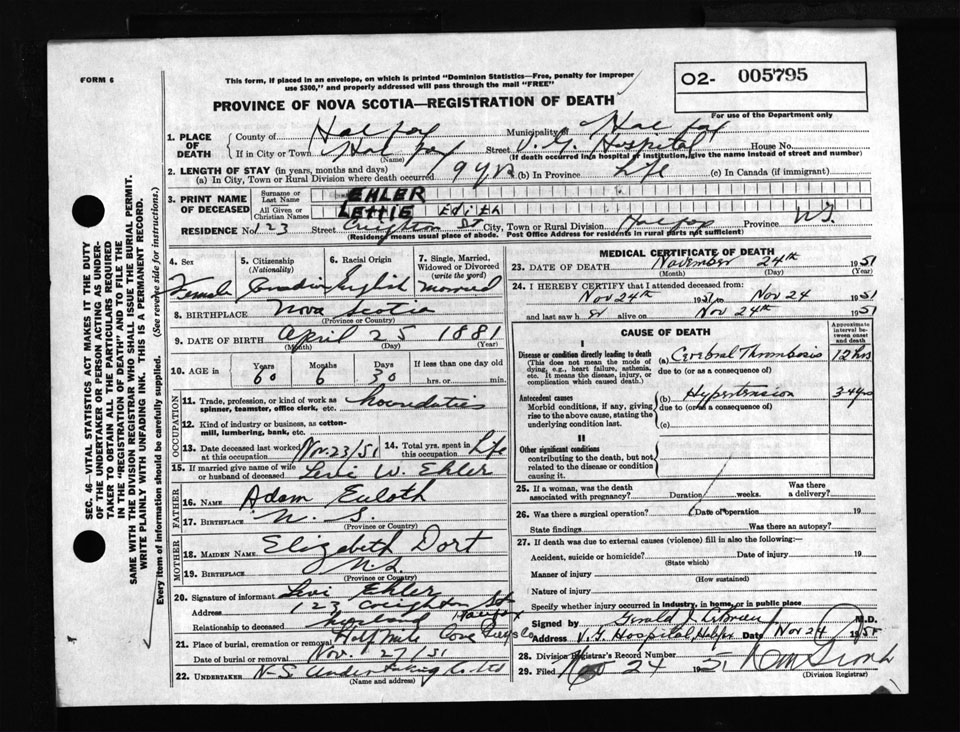 FORM 6
This form, if placed in an envelope, on which is printed "Dominion Statistics—Free, penalty for improper
use $300," and properly addressed will pass through the mail "FREE"
O2- 005795
For use of the Department only
PROVINCE OF NOVA SCOTIA—REGISTRATION OF DEATH
1. PLACE OF DEATH
County of Halifax Municipality of Halifax
If in City or Town Halifax (Name) Street V. G. Hospital House No.
(If death occurred in a hospital or institution, give the name instead of street and number)
2. LENGTH OF STAY (in years, months and days)
(a) In City, Town or Rural Division where death occurred 9 yrs (b) In Province Life (c) In Canada (if immigrant)
3. PRINT NAME OF DECEASED
Surname or Last Name EHLER
All Given or Christian Names LETTIE Edith
RESIDENCE No. 123 Street Creighton St City, Town or Rural Division Halifax Province N.S.
(Residence means usual place of abode. Post Office Address for residents in rural parts not sufficient)
4. Sex Female
5. Citizenship (Nationality) Canadian
6. Racial Origin English
7. Single, Married, Widowed or Divorced (write the word) Married
8. BIRTHPLACE Nova Scotia
(Province or Country)
9. DATE OF BIRTH April 25 1881
(Month) (Day) (Year)
10. AGE in Years 60 Months 6 Days 30 If less than one day
hrs. or min.
OCCUPATION
11. Trade, profession, or kind of work as
spinner, teamster, office clerk, etc.
12. Kind of industry or business, as cotton-
mill, lumbering, bank, etc.
13. Date deceased last worked at this occupation Nov. 23/51
14. Total yrs. spent in this occupation Life
15. If married give name of wife
or husband of deceased Levi W. Ehler
FATHER
16. Name Adam Euloth
17. Birthplace N. S.
(Province or Country)
MOTHER
18. Maiden Name Elizabeth Dort
19. Birthplace N.S.
(Province or Country)
20. Signature of informant Levi Ehler
Address 123 Creighton St. Halifax
Relationship to deceased husband
21. Place of burial, cremation or removal Half Cove
Date of burial or removal Nov. 27/51
22. UNDERTAKER N-S. Undertaking Co. Ltd
(Name and address)
MEDICAL CERTIFICATE OF DEATH
23. DATE OF DEATH November 24th 1951
(Month) (Day) (Year)
24. I HEREBY CERTIFY that I attended deceased from:
Nov 24th 1951 to Nov 24 1951
and last saw h er alive on Nov 24th 1951
CAUSE OF DEATH
Approximate interval between onset and death
I
Disease or condition directly leading to death
(This does not mean the mode of
dying, e.g., heart failure, asthenia,
etc. It means the disease, injury, or
complication which caused death.)
(a) Cerebral Thrombosis 12 hrs
due to (or as a consequence of)
Antecedent causes
Morbid conditions, if any, giving
rise to the above cause, stating the
underlying condition last.
(b) Hypertension 3-4 yrs
due to (or as a consequence of)
(c)
II
Other significant conditions
contributing to the death, but not
related to the disease or condition
causing it.
25. If a woman, was the death
associated with pregnancy? Duration weeks. Was there a delivery?
26. Was there a surgical operation? Date of operation 19
State findings Was there an autopsy?
27. If death was due to external causes (violence) fill in also the following:—
Accident, suicide or homicide? Date of injury 19
(State which)
Manner of injury
(How sustained)
Nature of injury
Specify whether injury occurred in Industry, in home, or in public place
Signed by Gerald J. M.D.
Address V. G. Hospital Date Nov 24 1951
28. Division Registrar's Record Number
29. Filed Nov 24 1951
(Division Registrar)
SEC. 46—VITAL STATISTICS ACT MAKES IT THE DUTY
OF THE UNDERTAKER OR PERSON ACTING AS UNDER-
TAKER TO OBTAIN ALL THE PARTICULARS REQUIRED
IN THE "REGISTRATION OF DEATH" AND TO FILE THE
SAME WITH THE DIVISION REGISTRAR WHO SHALL ISSUE THE BURIAL PERMIT.
WRITE PLAINLY WITH UNFADING INK. THIS IS A PERMANENT RECORD.
Every item of information should be carefully supplied. (See reverse side for instructions.)